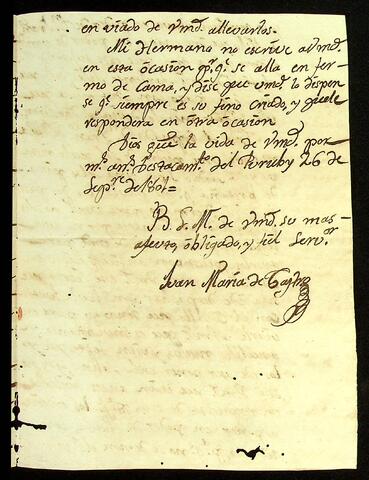 en viado de vmd. allevarlos.
Mi Hermano no escrive a vmd.
en esta ocasion pr. qe. se alla en fer-
mo de cama, y dise que vmd. lo dispen
se qe. siempre es su fino criado, y qe. le
respondera en otra ocasion
Dios gue. la vida de vmd. por
ms. ans. Destacamto. del 26 de
Sepre. de
B. S. M. de vmd. su mas
afecto, obligado, y fiel Servor.
Juan María de Castro